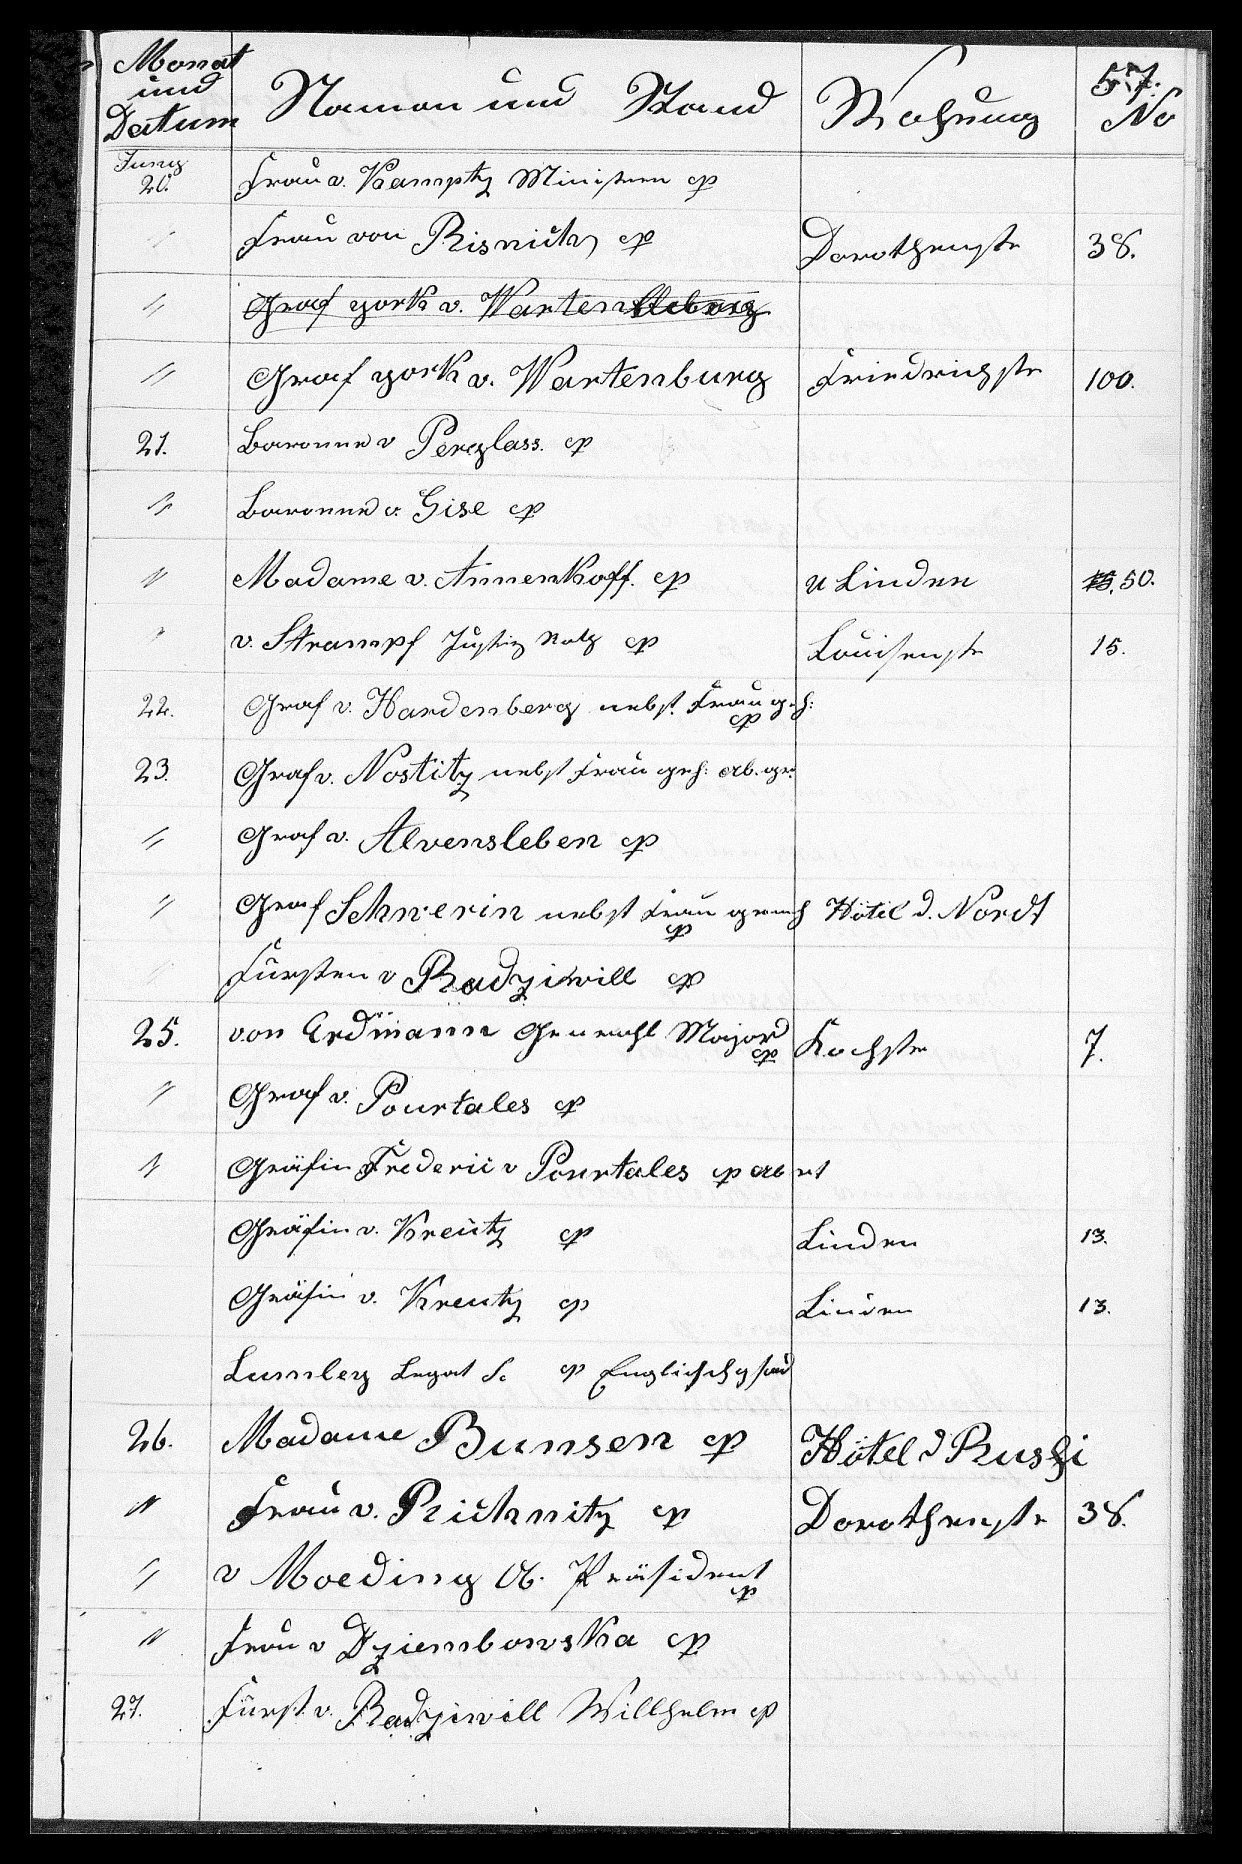 57.
Monat und Datum Namen und Stand Wohnung No
Juny 20. Frau v. Kamptz Ministern cp
" Frau von Risnitch cp Dorotheenstr 38.
" Graf york v. Warten
" Graf york v. Wartenburg Friedrichstr 100.
21. Baronne v Perglass. cp
" Baronne v. Gise cp
" Madame v. Annenkoff. cp u Linden 50.
" v. Strampf Justiz Rath cp Louisenstr 15.
22. Graf v. Hardenberg nebst Frau geh: cp
23. Graf v. Nostitz nebst Frau geh: ab. ge.
" Graf v. Alvensleben cp
" Graf Schwerin nebst Frau gemh cp Hôtel d. Nordt
" Fürsten v Radziwill cp
25. von Erdmann General Major cp Kochstr 7.
" Graf v. Pourtales cp
" Gräfin Frederic v Pourtales cp abrt
Gräfin v. Kreutz cp Linden 13.
Gräfin v. Kreutz cp Linden 13.
Lumley Legat S. cp Englisch gsand
26. Madame Bunsen cp Hôtel d Russi
" Frau v. Richnitz cp Dorotheenstr 38.
" v Moeding Ob. Präsident cp
" Frau v Dziembowska cp
27. Fürst v. Radziwill Willhelm cp